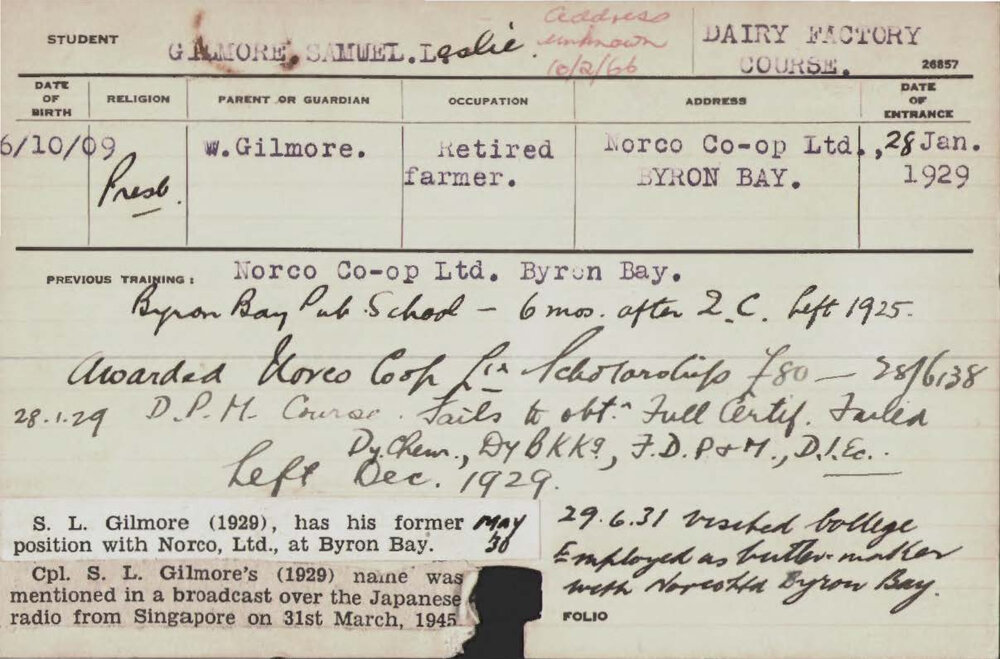 STUDENT GILMORE, SAMUEL. Leslie.
Address unknown 10/2/66
DAIRY FACTORY COURSE.
26857
DATE OF BIRTH RELIGION PARENT OR GUARDIAN OCCUPATION ADDRESS DATE OF ENTRANCE
6/10/09 Presb. W.Gilmore. Retired farmer. Norco Co-op Ltd., BYRON BAY. 28 Jan. 1929
PREVIOUS TRAINING: Norco Co-op Ltd. Byron Bay.
Byron Bay Pub. School - 6 mos. after Q.C. left 1925.
Awarded Norco Coop Scholarship £80 — 28/6/38
28.1.29 D.P.M. Course. Fails to obt.n Full Certif. Failed
Dy.Chem., Dy BKKg, F.D.P+M., D.I.Ec..
Left Dec. 1929.
S. L. Gilmore (1929), has his former
position with Norco, Ltd., at Byron Bay.
May 30
Cpl. S. L. Gilmore's (1929) name was
mentioned in a broadcast over the Japanese
radio from Singapore on 31st March, 1945
29.6.31 visited College
Employed as butter-maker
with Norco Ltd Byron Bay.
FOLIO